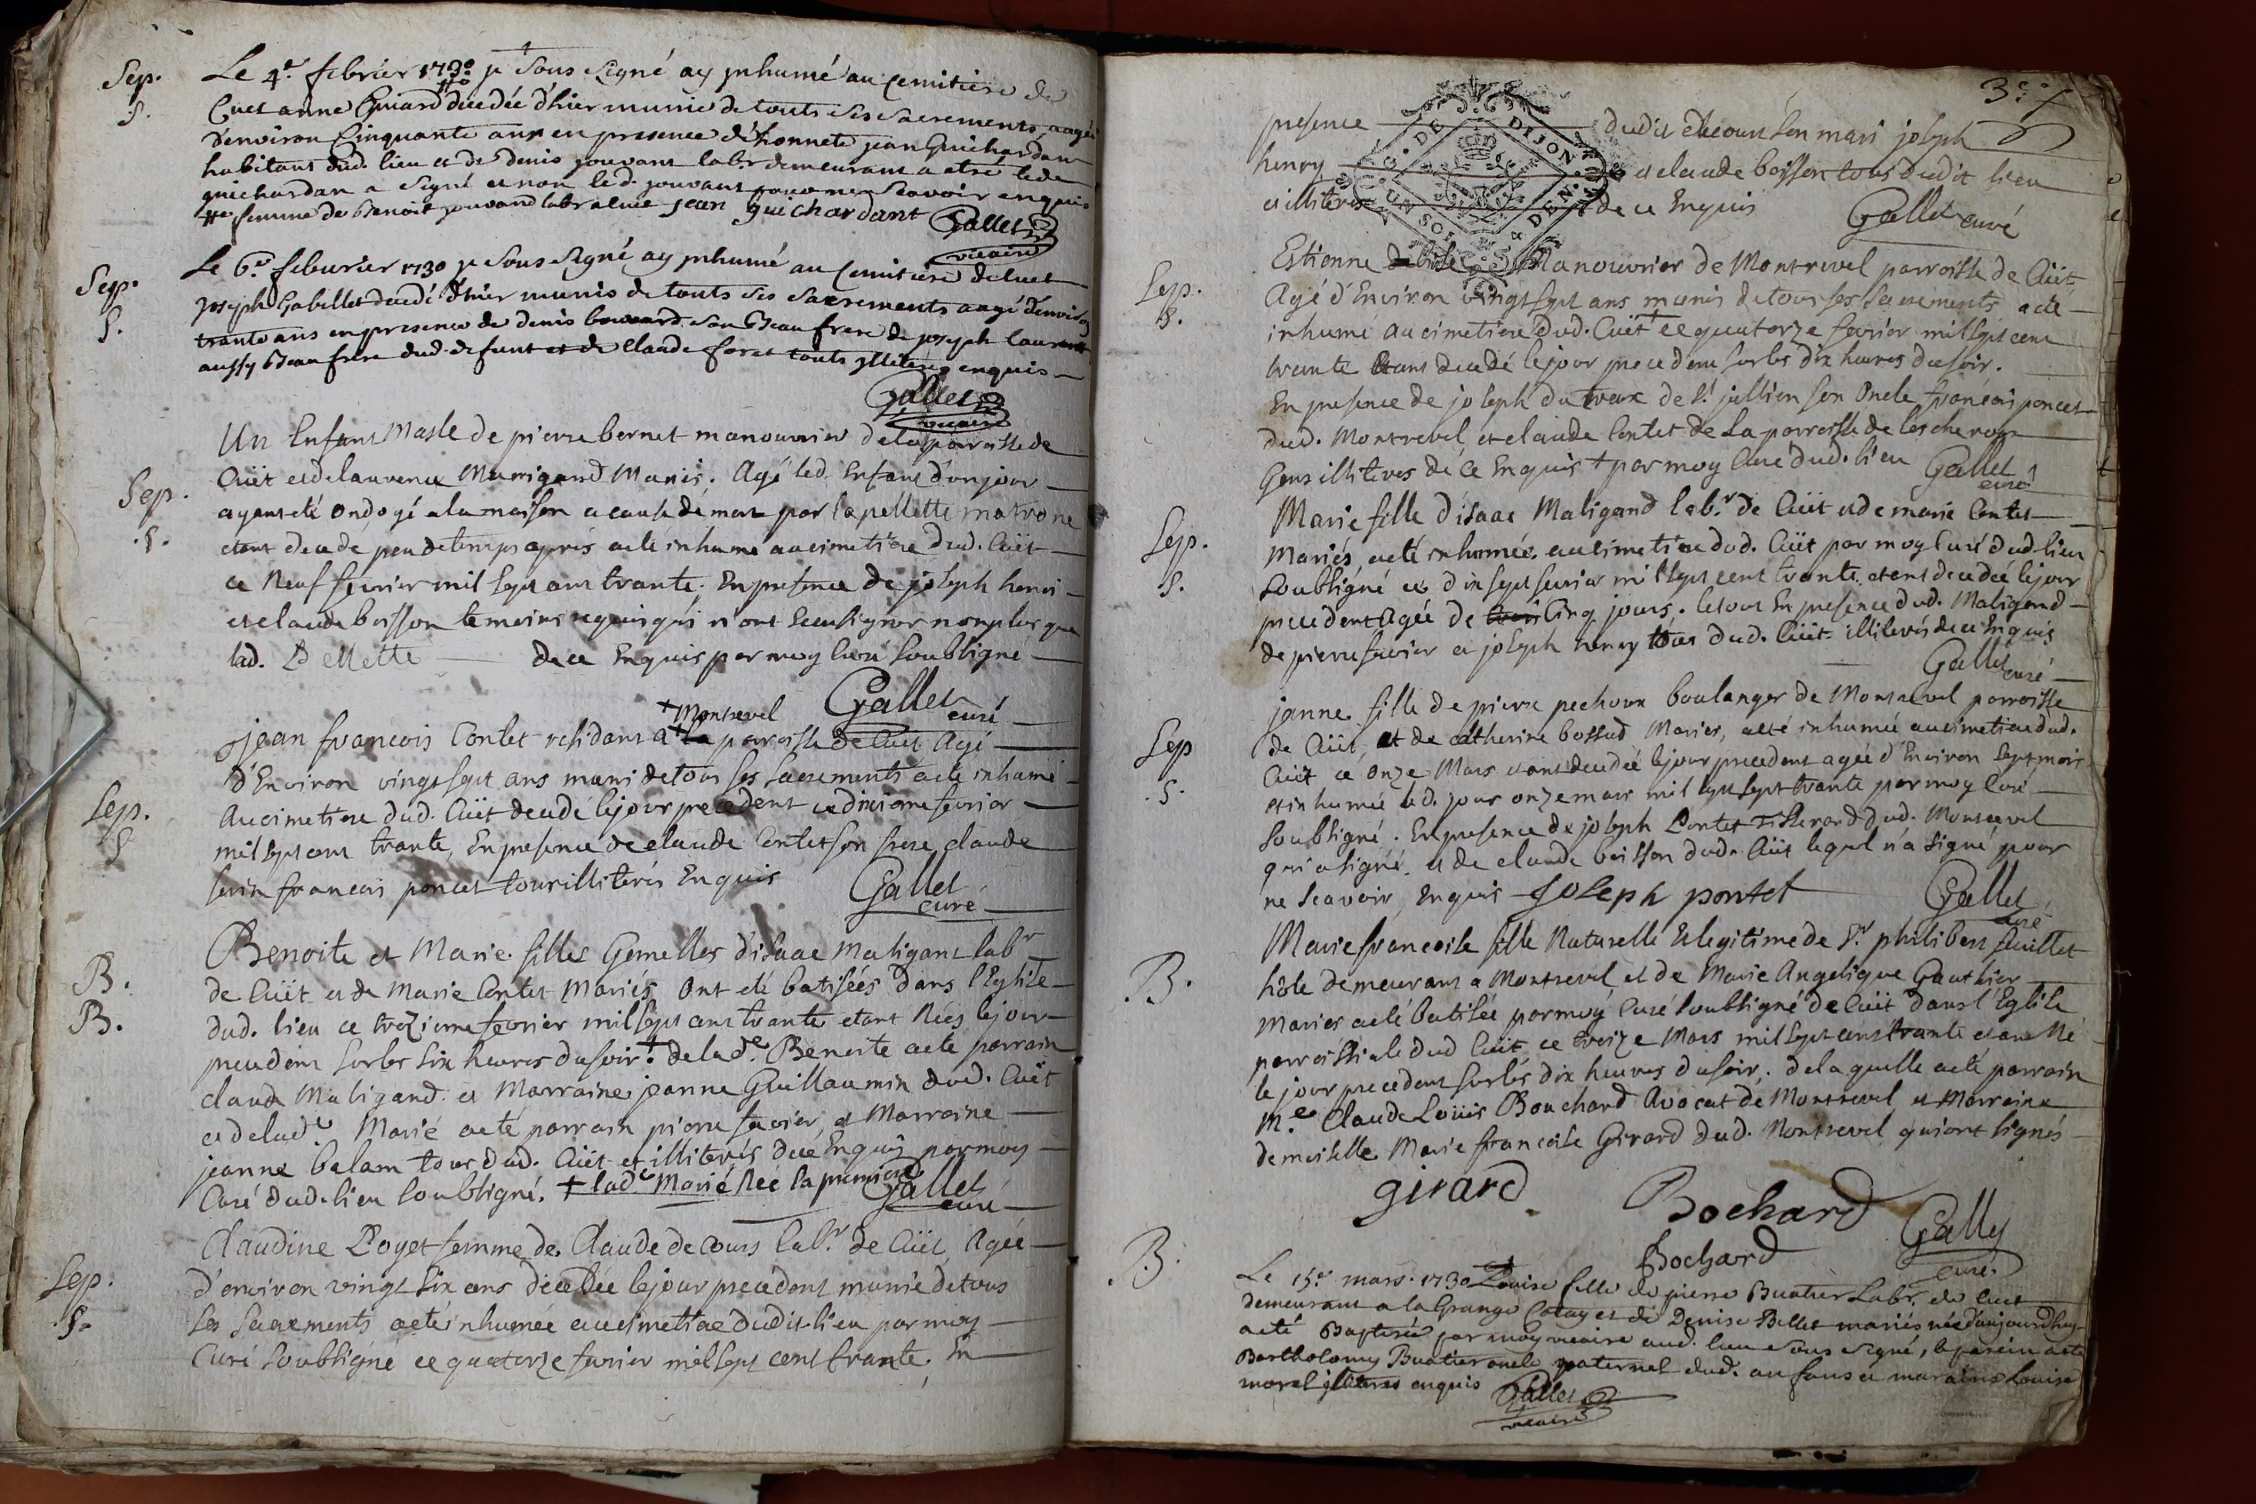 Sep.
S.
Le 4e. febrier 1730 je sous signé ay inhumé au cemitiere de
Cuet anne Guiard ## decedée d'hier munie de touts ses sacrements aagée
d'environ Cinquante ans en presence d'honnete jean Guichardan
habitant dud. lieu et de denis jouvant labr demeurant a led.
guichardan a signé et non led. jouvant pour ne scavoir enquis
## femme de Benoit jouvand labr a Cuet jean guichardant Gallet
vicaire
Sep.
S.
Le 6e. feburier 1730 je sous signé ay inhumé au cemitiere de Cuet
joseph Gabillet decedé d'hier munis de touts ses sacrements aagé d'environ
trante ans en presence de denis bouvard son Beau frere de joseph laurent
aussy Beau frere dud. defunt et de Claude foret touts illiterés enquis
Gallet
vicaire
Sep.
S.
Un Enfant Masle de pierre bernet manouvrier de la parroisse de
Cüet et de laurence Munigand Mariés. Agé led. Enfant d'un jour
ayant eté ondoyé a la maison a cause de mort par la pellette matrone
etant decede peu de temps aprés a eté inhumé au cimetiere dud. Cüet
ce Neuf fevrier mil sept cent trante. En presence de joseph henri
et claude boisson temoins requis qui n'ont sceu signer non plus que
lad. Pellette de ce Enquis par moy Curé soubsigné
Gallet
curé
Sep.
S.
+ Montrevel
jean francois Contet residant a + la parroisse de Cuet Agé
d'Environ vingt sept ans muni de tous ses sacrements a eté inhumé
au cimetiere dud. Cüet decedé le jour precedent ce dixieme fevrier
mil sept cent trante, En presence de claude Contet son frere claude
savin francois poncet tous illiterés Enquis
Gallet
curé
B.
B.
Benoite et Marie filles Gemelles d'isaac Maligant labr
de Cüet et de Marie Contet Mariés ont eté batisées dans l'Eglise
dud. lieu ce trezieme fevrier mil sept cent trante etant Nées le jour
precedent sur les six heures du soir. + de lade. Benoite a eté parrain
claude Maligand et Marraine jeanne Guillaumin dud. Cüet
et de lade Marie a eté parrain pierre favier et Marraine
jeanne balam tous dud. Cüet et illiterés de ce Enquis par moy
Curé dud. lieu soubsigné. + lade Marie Née la premiere
Gallet
curé
Sep.
S.
Claudine Poyet femme de Claude de cours labr. de Cüet Agée
d'environ vingt six ans decedée le jour precedent munie de tous
ses sacrements a eté inhumée au cimetiere dudit lieu par moy
Curé soubsigné ce quatorze fevrier mil sept cent trante. En
3e.
presence dudit decours son mari joseph
henry et claude boisson tous dudit lieu
et illiterés de ce Enquis
Gallet curé
G. DE DIJON
UN SOL
DEN.
Sep.
S.
Estienne Manouvrier de Montrevel parroisse de Cüet
Agé d'Environ vingt sept ans munis de tous ses sacrements a eté
inhumé au cimetiere dud. Cüet + ce quatorze fevrier mil sept cent
trante etant decedé le jour precedent sur les dix heures du soir.
En presence de joseph de St. jullien son Oncle francois poncet
dud. Montrevel, et claude Contet de la parroisse de lescheroux
Gens illiteres de ce Enquis + par moy Curé dud. lieu
Gallet
curé
Sep.
S.
Marie fille d'isaac Maligand labr. de Cüet et de marie Contet
Mariés a eté inhumée au cimetiere dud. Cüet par moy Curé dud. lieu
soubsigné ce dix sept fevrier mil sept cent trante etant decedée le jour
precedent Agée de Cinq jours. le tout En presence dud. Maligand
de pierre favier et joseph henry tous dud. Cüet illiterés de ce Enquis
Gallet
curé
Sep
S.
janne fille de pierre pechoux boulanger de Montrevel parroisse
de Cüet, et de catherine bossud Mariés, a eté inhumée au cimetiere dud.
Cüet ce onze Mars etant decedée le jour precedent agée d'Environ sept mois
et inhumée led. jour onze mars mil sept sept trante par moy Curé
soubsigné. En presence de joseph Pontet Tisserand dud. Montrevel
qui a signé et de claude boisson dud. Cüet lequel n'a signé pour
ne scavoir, Enquis joseph pontet
Gallet
curé
B.
Marie francoise fille Naturelle et legitime de Sr. philibert feuillet
hôte demeurant a Montrevel et de Marie Angelique Gauthier
Mariés a eté batisée par moy Curé soubsigné de Cüet dans l'Eglise
parroissiale dud Cüet ce treize Mars mil sept cent trante etant Né
le jour precedent sur les dix heures du soir. de laquelle a eté parrain
Me. Claude Loüis Bouchard Avocat de Montrevel et Marraine
demoiselle Marie francoise Girard dud. Montrevel qui ont signés
girard Bochard
Bochard
Gallet
curé
B.
Le 15e. mars 1730 Louise fille de pierre Buatier Labr. de Cuet
demeurant a la Grange Cotay et de Denise Billet mariés née d'aujourdhuy
a eté Baptisée par moy vicaire aud. lieu sous signé, le parein a eté
Bartholomy Buatier oncle paternel dud. anfans et marainne Louise
morel illiteres enquis
Gallet
vicaire